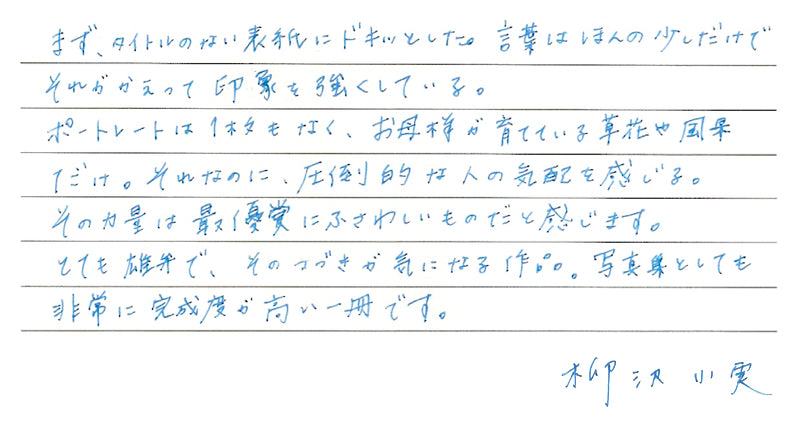 まず、タイトルのない表紙にドキッとした。言葉はほんの少しだけで
それがかえって印象を強くしている。
ポートレートは1枚もなく、お母様が育てている草花や風景
だけ。それなのに、圧倒的な人の気配を感じる。
その力量は最優賞にふさわしいものだと感じます。
とても雄弁で、そのつづきが気になる作品。写真集としても
非常に完成度が高い一冊です。
柳沢小実